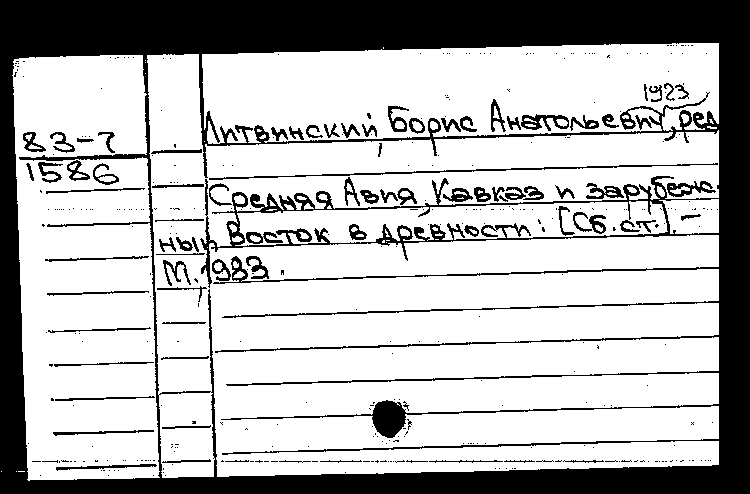 1923
83-7 Литвинский, Борис Анатольевич, ред
1586
Средняя Азия, Кавказ и зарубеж-
ный Восток в древности: [Сб. ст.]. -
М., 1983.